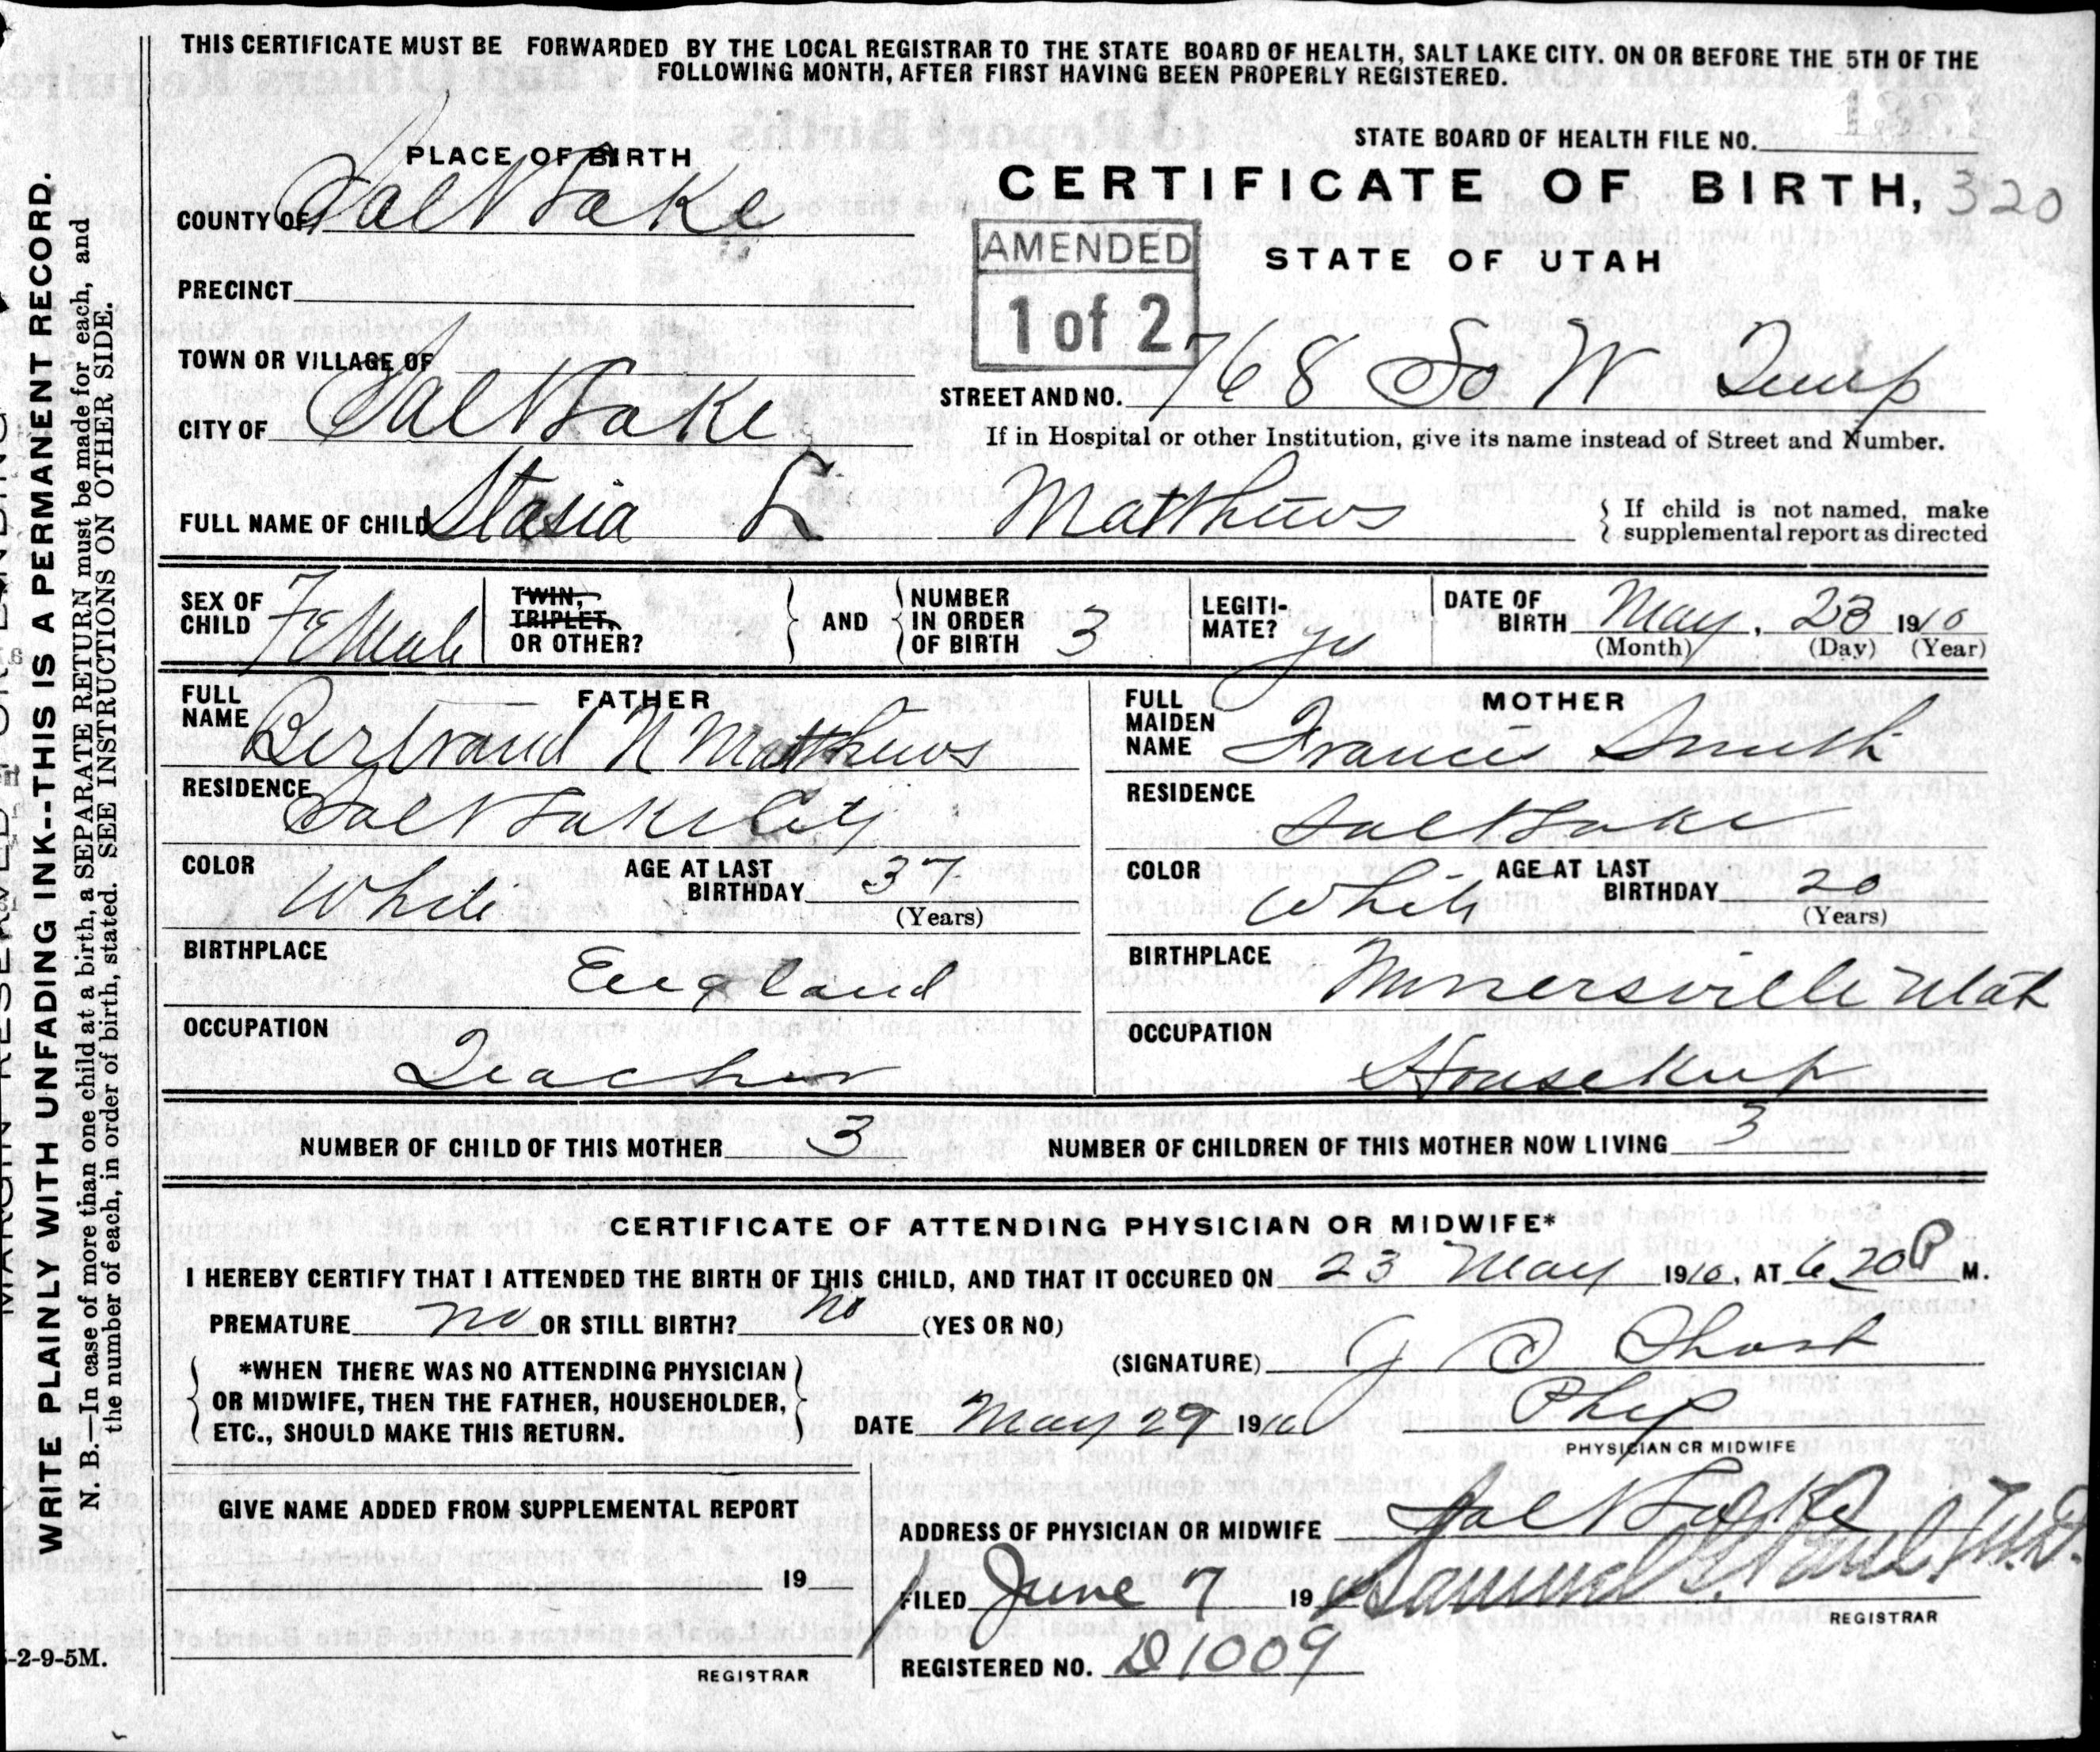 THIS CERTIFICATE MUST BE FORWARDED BY THE LOCAL REGISTRAR TO THE STATE BOARD OF HEALTH, SALT LAKE CITY. ON OR BEFORE THE 5TH OF THE
FOLLOWING MONTH, AFTER FIRST HAVING BEEN PROPERLY REGISTERED.
STATE BOARD OF HEALTH FILE NO.
PLACE OF BIRTH
CERTIFICATE OF BIRTH, 320
COUNTY OF Salt Lake
STATE OF UTAH
AMENDED
1 of 2
PRECINCT
TOWN OR VILLAGE OF
STREET AND NO. 768 So W Temp
CITY OF Salt Lake
If in Hospital or other Institution, give its name instead of Street and Number.
FULL NAME OF CHILD Stasia L Matthews
If child is not named, make
supplemental report as directed
SEX OF
CHILD Female
TWIN,
TRIPLET,
OR OTHER?
AND
NUMBER
IN ORDER
OF BIRTH 3
LEGITI-
MATE? yes
DATE OF
BIRTH May, 23 1910
(Month) (Day) (Year)
FATHER
FULL
NAME Bertrand N Matthews
RESIDENCE Salt Lake City
COLOR White
AGE AT LAST
BIRTHDAY 37
(Years)
BIRTHPLACE England
OCCUPATION Teacher
MOTHER
FULL
MAIDEN
NAME Francis Smith
RESIDENCE Salt Lake
COLOR White
AGE AT LAST
BIRTHDAY 20
(Years)
BIRTHPLACE Minersville Utah
OCCUPATION Housekeep
NUMBER OF CHILD OF THIS MOTHER 3
NUMBER OF CHILDREN OF THIS MOTHER NOW LIVING 3
CERTIFICATE OF ATTENDING PHYSICIAN OR MIDWIFE*
I HEREBY CERTIFY THAT I ATTENDED THE BIRTH OF THIS CHILD, AND THAT IT OCCURED ON 23 May 1910, AT 6 20 P M.
PREMATURE no OR STILL BIRTH? no (YES OR NO)
*WHEN THERE WAS NO ATTENDING PHYSICIAN
OR MIDWIFE, THEN THE FATHER, HOUSEHOLDER,
ETC., SHOULD MAKE THIS RETURN.
(SIGNATURE)
DATE May 29 1910
PHYSICIAN OR MIDWIFE
GIVE NAME ADDED FROM SUPPLEMENTAL REPORT
19
REGISTRAR
ADDRESS OF PHYSICIAN OR MIDWIFE Salt Lake
FILED June 7 19 Samuel G. Paul, M.D.
REGISTRAR
REGISTERED NO. D1009
WRITE PLAINLY WITH UNFADING INK--THIS IS A PERMANENT RECORD.
N. B.—In case of more than one child at a birth, a SEPARATE RETURN must be made for each, and
the number of each, in order of birth, stated. SEE INSTRUCTIONS ON OTHER SIDE.
-2-9-5M.